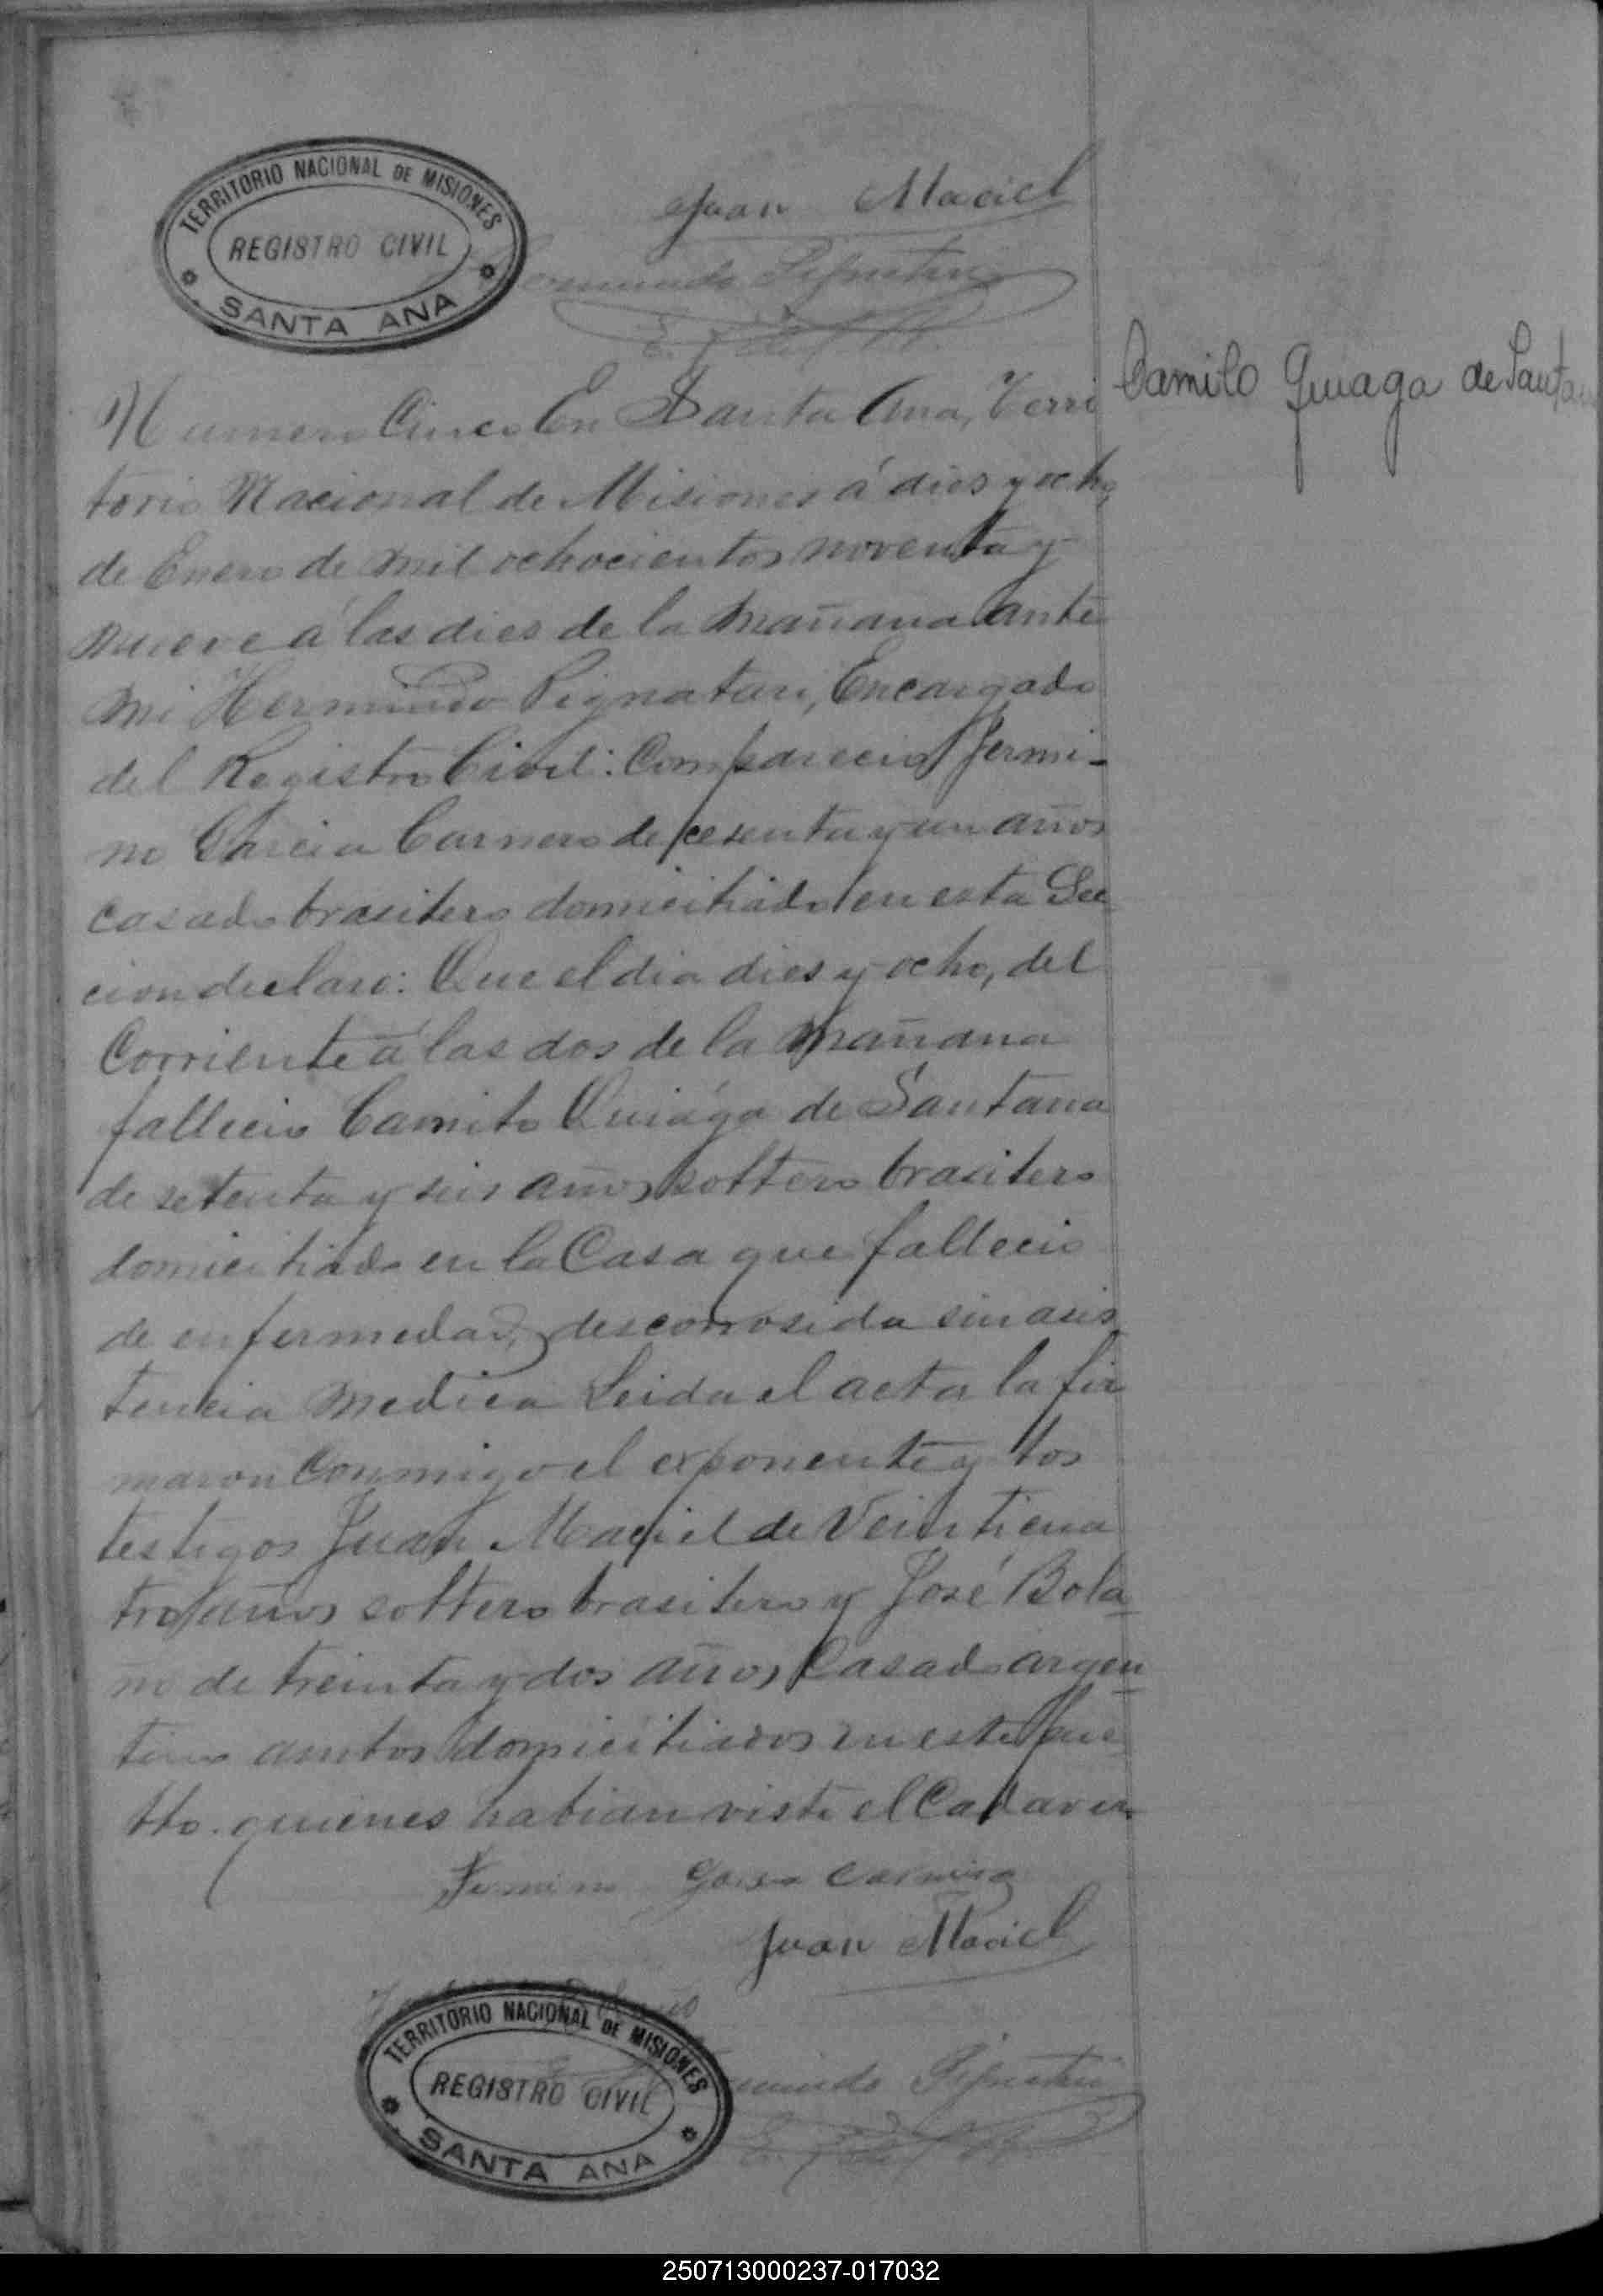 TERRITORIO NACIONAL DE MISIONES
REGISTRO CIVIL
SANTA ANA
Juan Maciel
Camilo Quiaga de Santan
Numero Cinco En Santa Ana, Terri
torio Nacional de Misiones á dies y ocho
de Enero de mil ochocientos noventa y
nueve á las dies de la mañana ante
mi Hermindo Pignatari, Encargado
del Registro Civil: Comparecio Fermi-
no Garcia Carnero de cesenta y un años
casado brasilero domiciliado en esta Sec
cion declaro: Que el dia dies y ocho, del
Corriente á las dos de la mañana
fallecio Camilo Quiága de Santana
de setenta y seis años soltero brasilero
domiciliado en la Casa que fallecio
de enfermedad, desconosida sin asis
tencia medica Leida el acta la fir
maron Conmigo el exponente y los
testigos Juan Maciel de Veinticua
tro años soltero brasilero y José Bola-
ño de treinta y dos años, Casado argen-
tino ambos domiciliados en este pue-
blo. quienes habian visto el Cadaver
Fermino Garcia Carneiro
Juan Maciel
TERRITORIO NACIONAL DE MISIONES
REGISTRO CIVIL
SANTA ANA
250713000237-017032